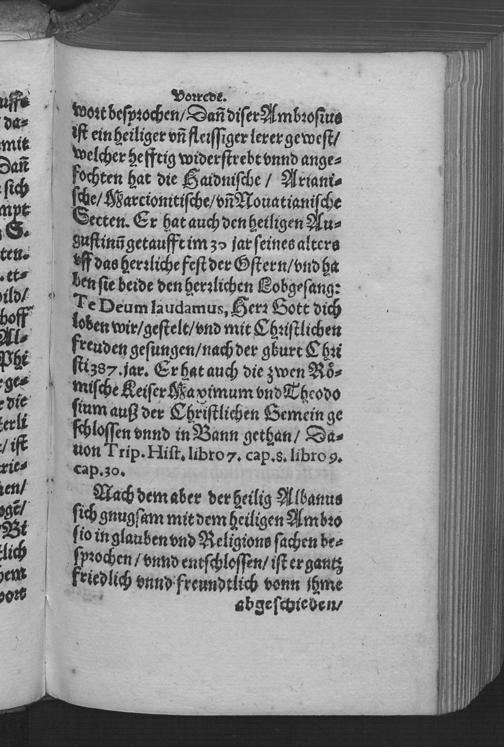 Vorrede.
wort besprochen/ Dañ diser Ambrosius
ist ein heiliger vñ fleissiger lerer gewest/
welcher hefftig widerstrebt vnnd ange-
fochten hat die Haidnische / Ariani-
sche/ Marcionitische/ vñ Nouatianische
Secten. Er hat auch den heiligen Au-
gustinũ getaufft im 30 jar seines alters
vff das herrliche fest der Ostern/ vnd ha
ben sie beide den herrlichen Lobgesang:
Te Deum laudamus, Herr Gott dich
loben wir/ gestelt/ vnd mit Christlichen
freuden gesungen/ nach der gburt Chri
sti 387. jar. Er hat auch die zwen Rö-
mische Keiser Maximum vnd Theodo
sium auß der Christlichen Gemein ge
schlossen vnnd in Bann gethan/ Da-
uon Trip. Hist. libro 7. cap. 8. libro 9.
cap. 30.
Nach dem aber der heilig Albanus
sich gnugsam mit dem heiligen Ambro
sio in glauben vnd Religions sachen be-
sprochen/ vnnd entschlossen/ ist er gantz
friedlich vnnd freundtlich vonn ihme
abgeschieden/